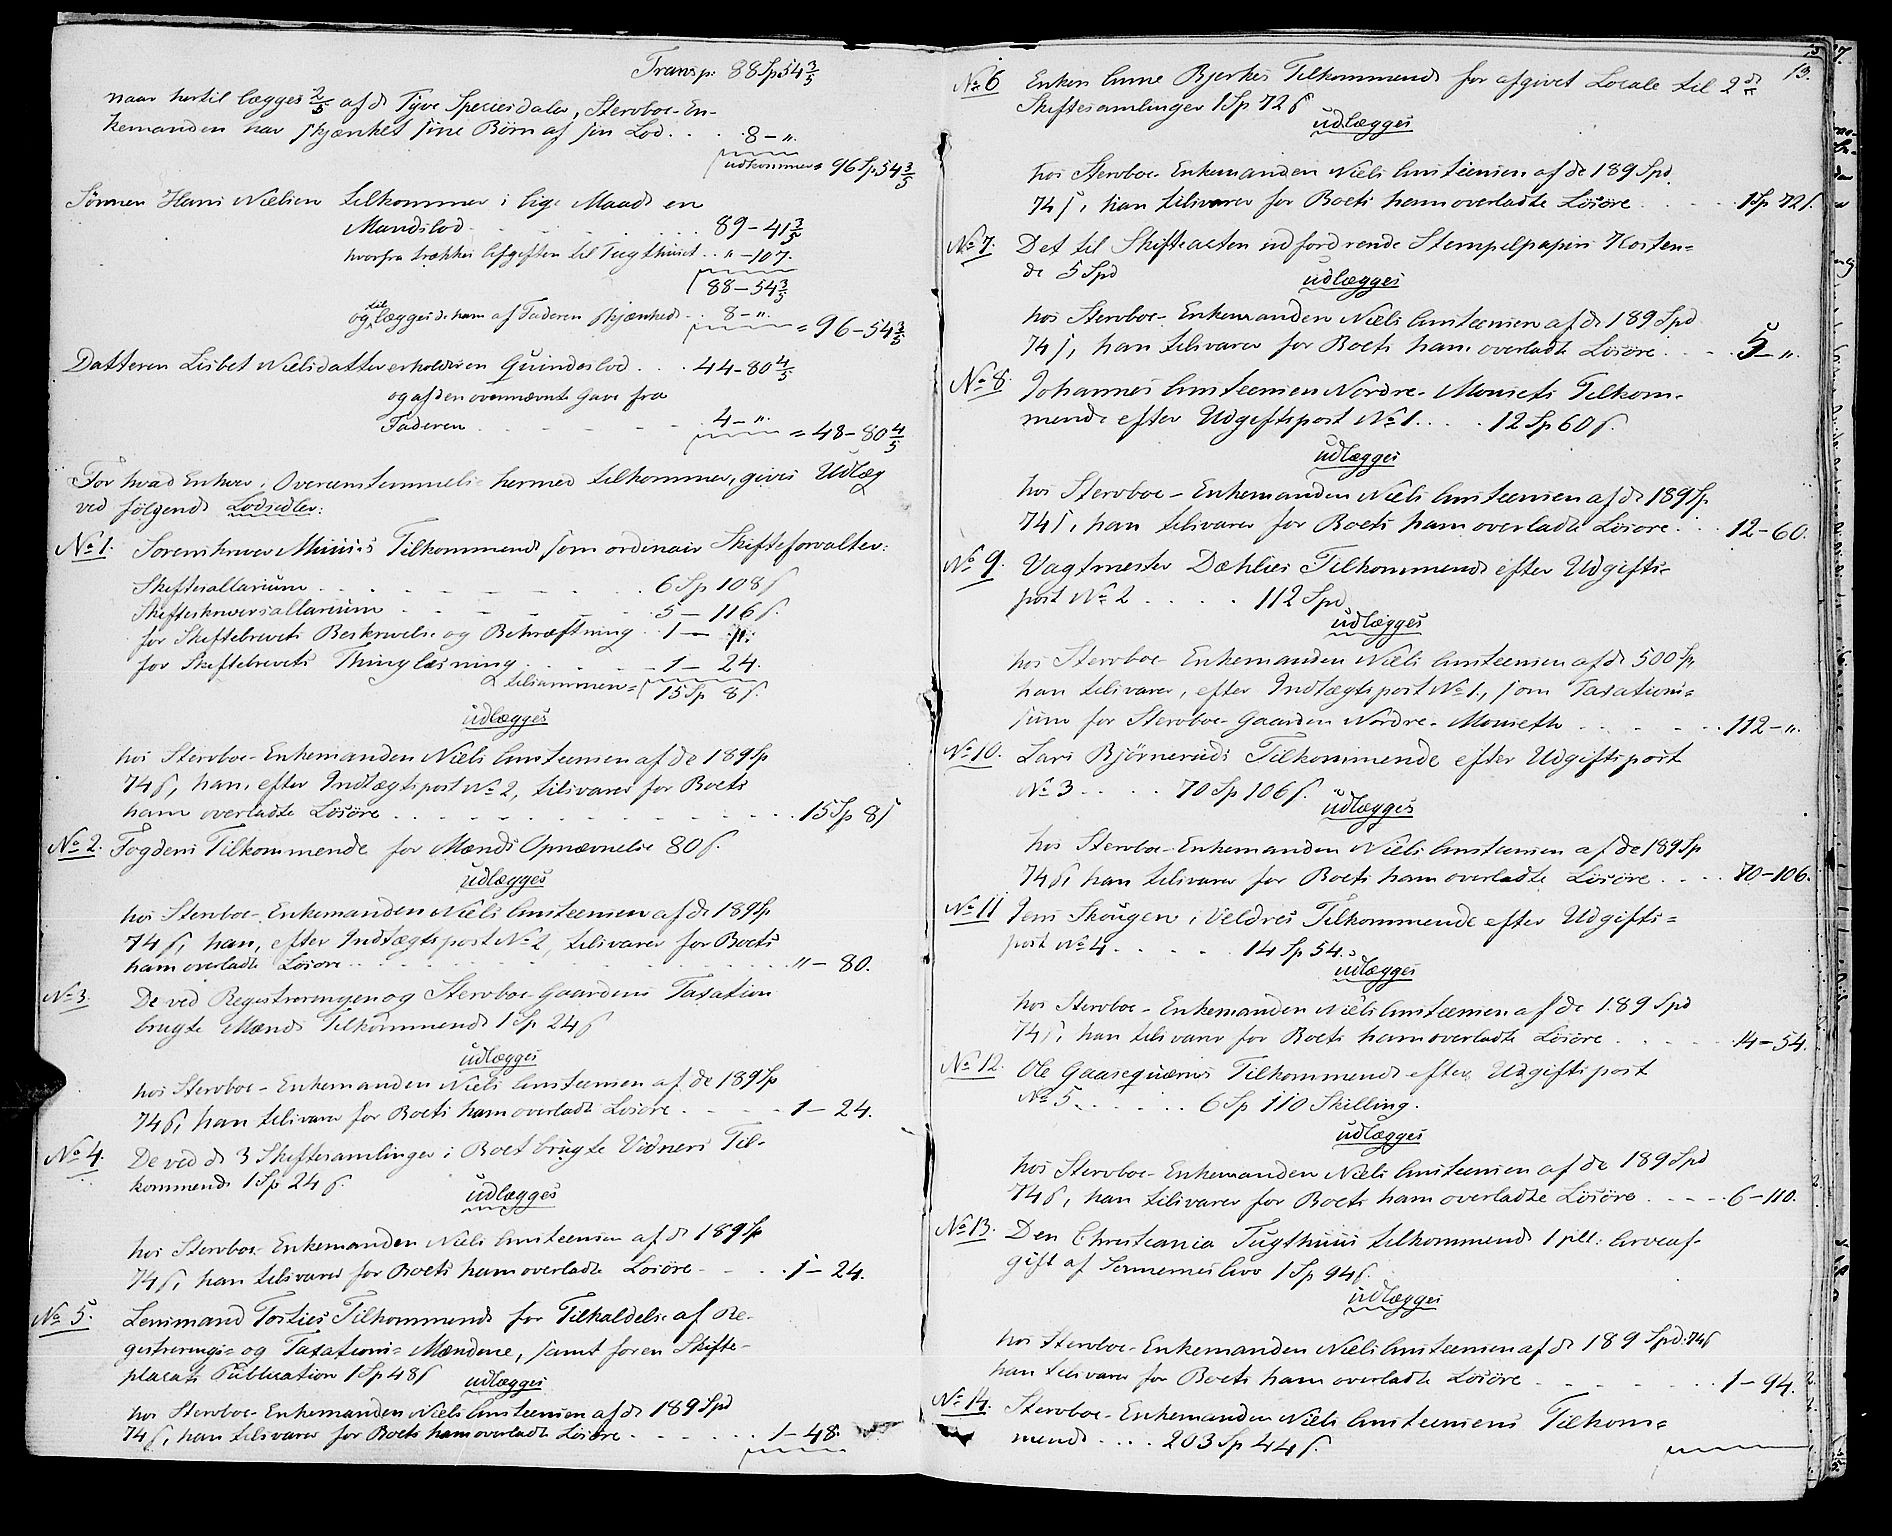 Transp: 88 Sp 54 3/5
naar hertil lægges 2/5 af de Tyve Speciesdaler, Stervboe-En-
kemanden har skjænket sine Børn af sin Lod . . . 8 - „.
udkommer = 96 Sp. 54 3/5
Sønnen Hans Nielsen tilkommer i lige Maade en
Mandslod . . . 89 - 41 3/5
hvorfra trækkes Afgiften til Tugthuset . . „ - 107.
88 - 54 3/5
og til lægges de ham af Faderen skjænkede . . 8 - „. = 96 - 54 3/5
Datteren Lisbet Nielsdatter erholder en Quindeslod . . . 44 - 80 4/5
og af den ovennævnte Gave fra
Faderen . . . 4 - „. = 48 - 80 4/5
For hvad Enhver i Overeenstemmelse hermed tilkommer, gives Udlæg
ved følgende Lodsedler:
No 1. Sorenskriver Muus's Tilkommende som ordinair Skifteforvalter:
Skiftesallarium . . . 6 Sp 108 s
Skifteskriversallarium . . . 5 - 116 s.
for Skiftebrevets Beskrivelse og Bekræftning . . 1 - „.
for Skiftebrevets Thinglæsning . . . 1 - 24.
tilsammen = 15 Sp 8 s.
udlægges
hos Stervboe-Enkemanden Niels Amsteensen af de 189 Sp
74 s, han, efter Indtægtspost No 2, tilsvarer for Boets
ham overladte Løsøre . . . 15 Sp 8 s
No 2. Fogdens Tilkommende for Mænds Opnævnelse 80 s.
udlægges
hos Stervboe-Enkemanden Niels Amsteensen af de 189 Sp
74 s, han, efter Indtægtspost No 2, tilsvarer for Boets
ham overladte Løsøre . . . „ - 80.
No 3. De ved Registreringen og Stervboe-Gaardens Taxation
brugte Mænds Tilkommende 1 Sp 24 s
udlægges
hos Stervboe-Enkemanden Niels Amsteensen af de 189 Sp
74 s, han tilsvarer for Boets ham overladte Løsøre . . . 1 - 24.
No 4. De ved de 3 Skiftesamlinger i Boet brugte Vidners Til-
kommende 1 Sp 24 s.
udlægges
hos Stervboe-Enkemanden Niels Amsteensen af de 189 Sp
74 s, han tilsvarer for Boets ham overladte Løsøre . . . 1 - 24.
No 5. Lensmand Tosties Tilkommende for Tilholdelse af Re-
gistrerings- og Taxations-Mændene, samt for en Skifte-
placats Publication 1 Sp 48 s
udlægges
hos Stervboe-Enkemanden Niels Amsteensen af de 189 Spd
74 s, han tilsvarer for Boets ham overladte Løsøre . . . 1 - 48.
13.
No 6 Enken Anne Bjerkes Tilkommende for afgivet Locale til 2de
Skiftesamlinger 1 Sp 72 s
udlægges
hos Stervboe-Enkemanden Niels Amsteensen af de 189 Spd
74 s, han tilsvarer for Boets ham overladte Løsøre . . . 1 Sp 72 s.
No 7. Det til Skifteacten udfordrende Stempelpapiir Kosten-
de 5 Spd
udlægges
hos Stervboe-Enkemanden Niels Amsteensen af de 189 Spd
74 s, han tilsvarer for Boets ham overladte Løsøre . . . 5 - „.
No 8. Johannes Amsteensen Nordre-Monsets Tilkom-
mende efter Udgiftspost No 1 . . . 12 Sp 60 s.
udlægges
hos Stervboe-Enkemanden Niels Amsteensen af de 189 Sp
74 s, han tilsvarer for Boets ham overladte Løsøre . . 12 - 60.
No 9. Vagtmester Dæhlies Tilkommende efter Udgifts-
post No 2 . . . 112 Spd
udlægges
hos Stervboe-Enkemanden Niels Amsteensen af de 500 Sp,
han tilsvarer, efter Indtægtspost No 1., som Taxations-
sum for Stervboe-Gaarden Nordre-Monseth . . . 112 - „.
No 10. Lars Bjørneruds Tilkommende efter Udgiftspost
No 3 . . . 70 Sp 106 s.
udlægges
hos Stervboe-Enkemanden Niels Amsteensen af de 189 Sp
74 s, han tilsvarer for Boets ham overladte Løsøre . . . 70 - 106.
No 11 Jens Skougen i Veldres Tilkommende efter Udgifts-
post No 4 . . . 14 Sp 54.
udlægges
hos Stervboe-Enkemanden Niels Amsteensen af de 189 Spd
74 s, han tilsvarer for Boets ham overladte Løsøre . . . 14 - 54.
No 12. Ole Gaasequærns Tilkommende efter Udgiftspost
No 5. . . . 6 Sp 110 Skilling.
udlægges
hos Stervboe-Enkemanden Niels Amsteensen af de 189 Spd
74 s, han tilsvarer for Boets ham overladte Løsøre . . . 6 - 110.
No 13. Den Christiania Tugthuus tilkommende 1 pCt: Arveaf-
gift af Sønnernes Arv 1 Sp 94 s.
udlægges
hos Stervboe-Enkemanden Niels Amsteensen af de 189 Spd: 74 s
han tilsvarer for Boets ham overladte Løsøre . . . 1 - 94.
No 14. Stervboe-Enkemanden Niels Amsteensens Tilkom-
mende . . . 203 Sp 44 s.